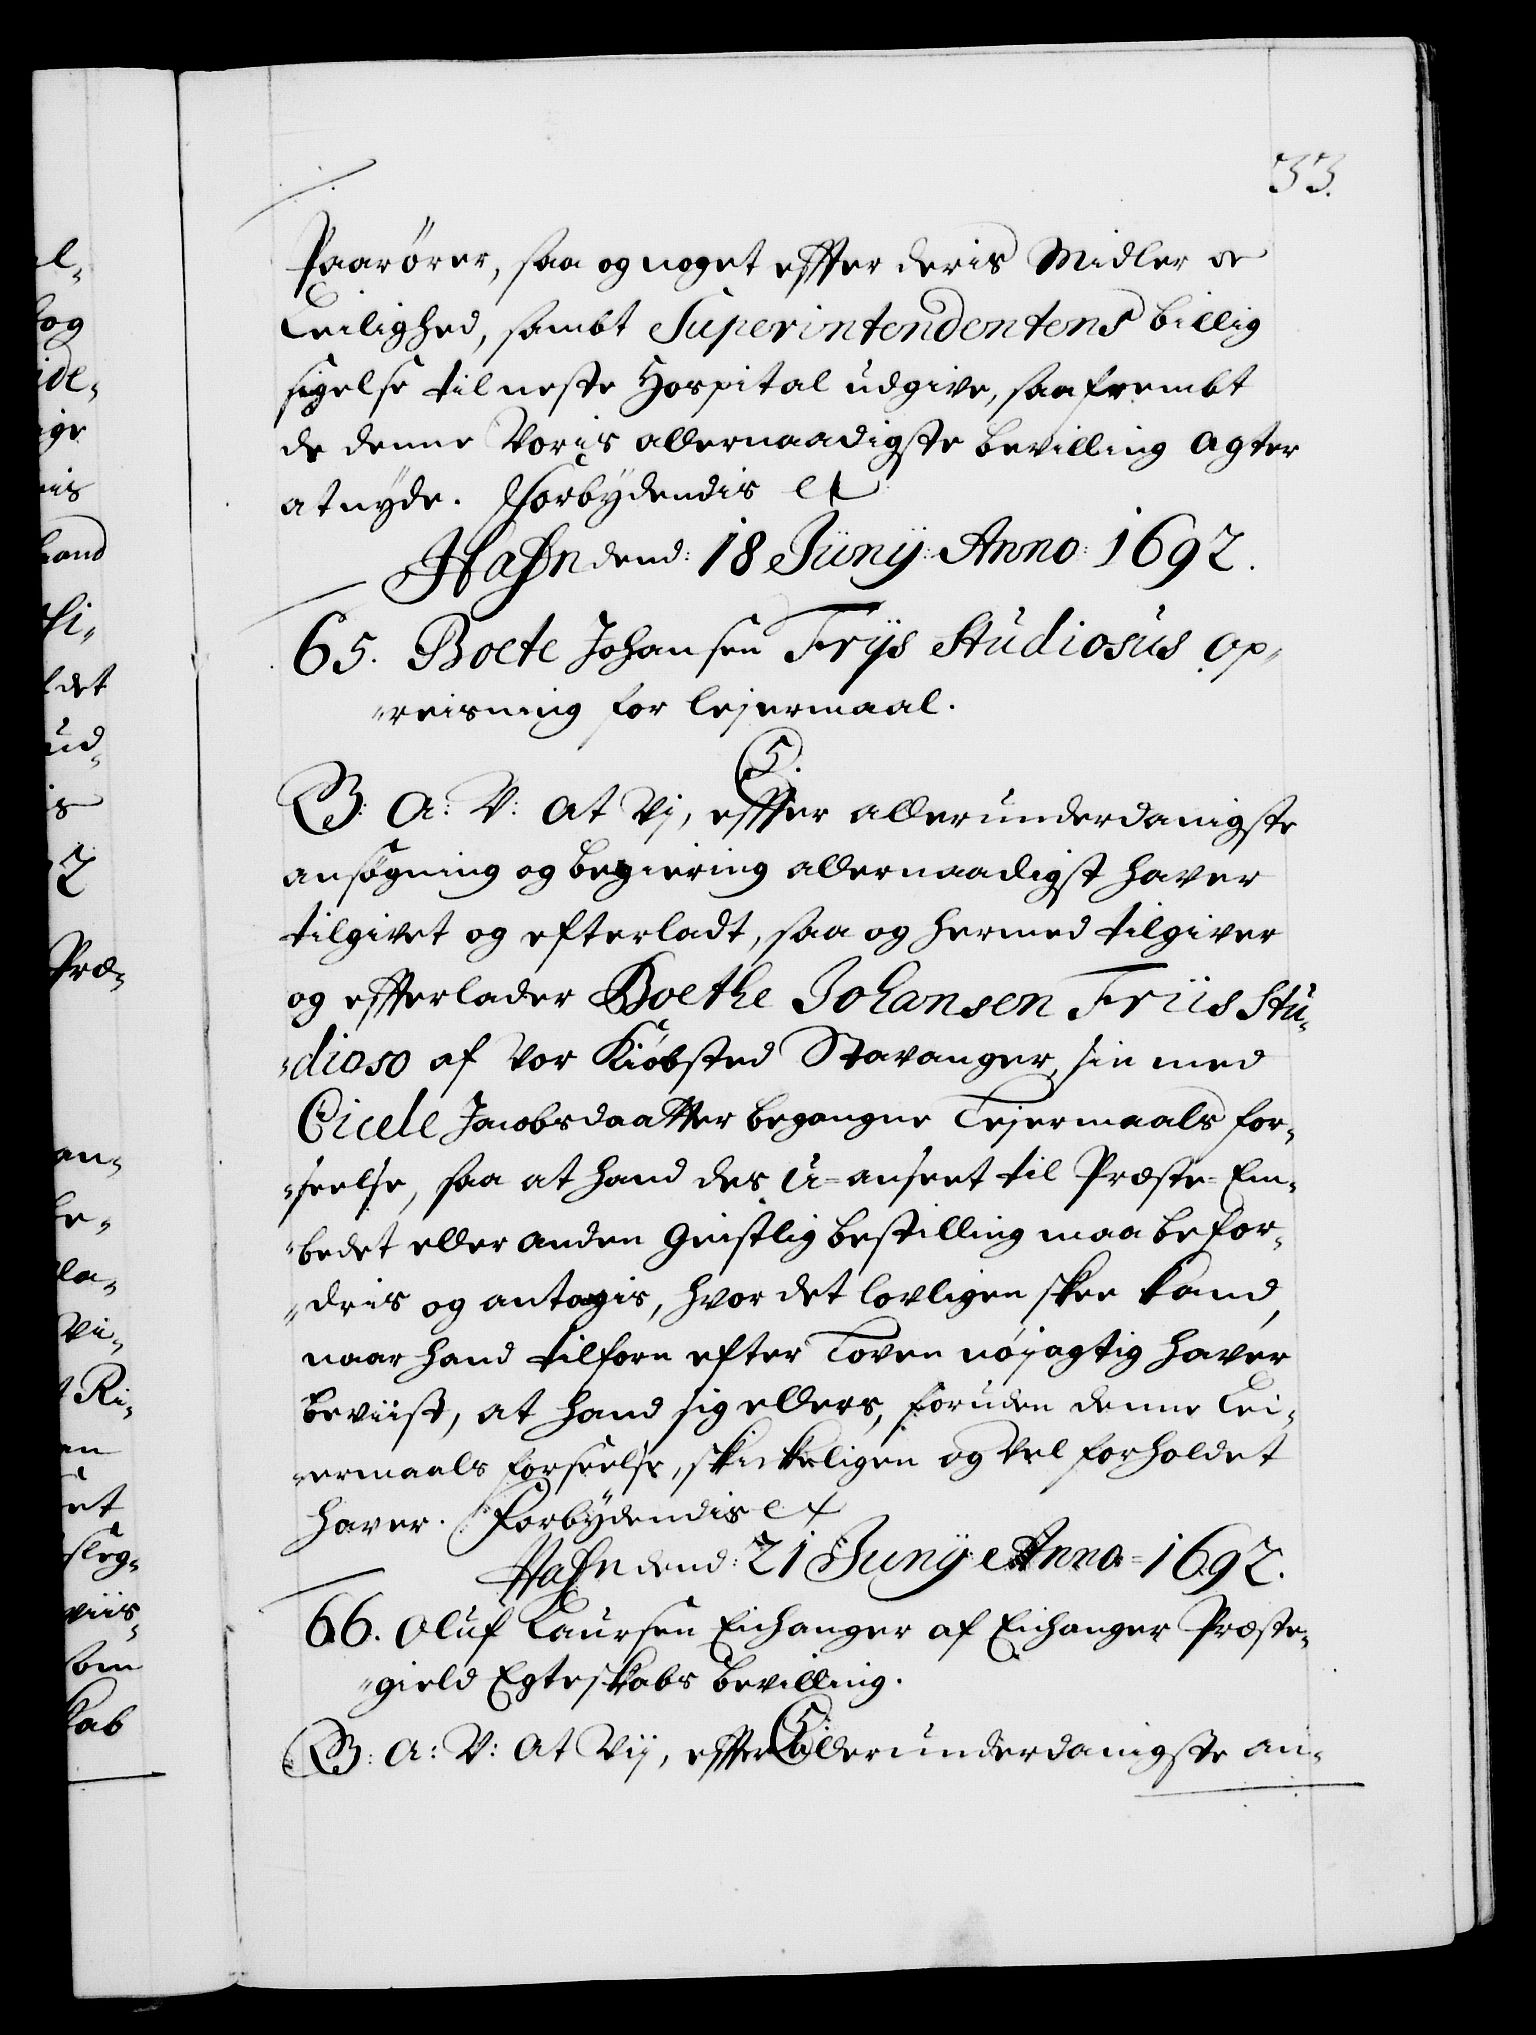 33.
Paarörer, saa og noget effter deris Midler oc
Leilighed, sambt Superintendentens billig
sigelse til neste Hospital udgive, saafrembt
de denne Voris allernaadigste bevilling agter
at nyde. Forbÿdendis et
Hafn dend: 18 Junÿ: Anno: 1692.
65. Boete Johansen Frijs Studiosus op„
„reisning for lejermaal.
5.
B: A: V: At Vj, effter allerunderdanigste
ansøgning og begiering allernaadigst haver
tilgivet og efterladt, saa og hermed tilgiver
og effterlader Boethe Johansen Friis Stu„
„dioso af Vor Kiöbsted Stavanger, sin med
Cicele Jacobsdaatter begangne Lejermaals for„
„seelse, saa at hand des u-anseet til Præste-Em„
„bedet eller anden Geistlig bestilling maa befor„
„dris og antagis, hvor det lovligen skee kand,
naar hand tilforn efter Loven nöjagtig haver
beviist, at hand sig ellers, foruden denne Lei„
„ermaals forseelse, skickeligen og vel forholdet
haver. Forbÿdendis et
Hafn dend: 21 Junÿ: Anno = 1692.
66. Oluf Laursen Eichanger af Eichanger Præste„
„gield Egteskabs bevilling.
5.
B: A: V: At Vij, effter allerunderdanigste an„